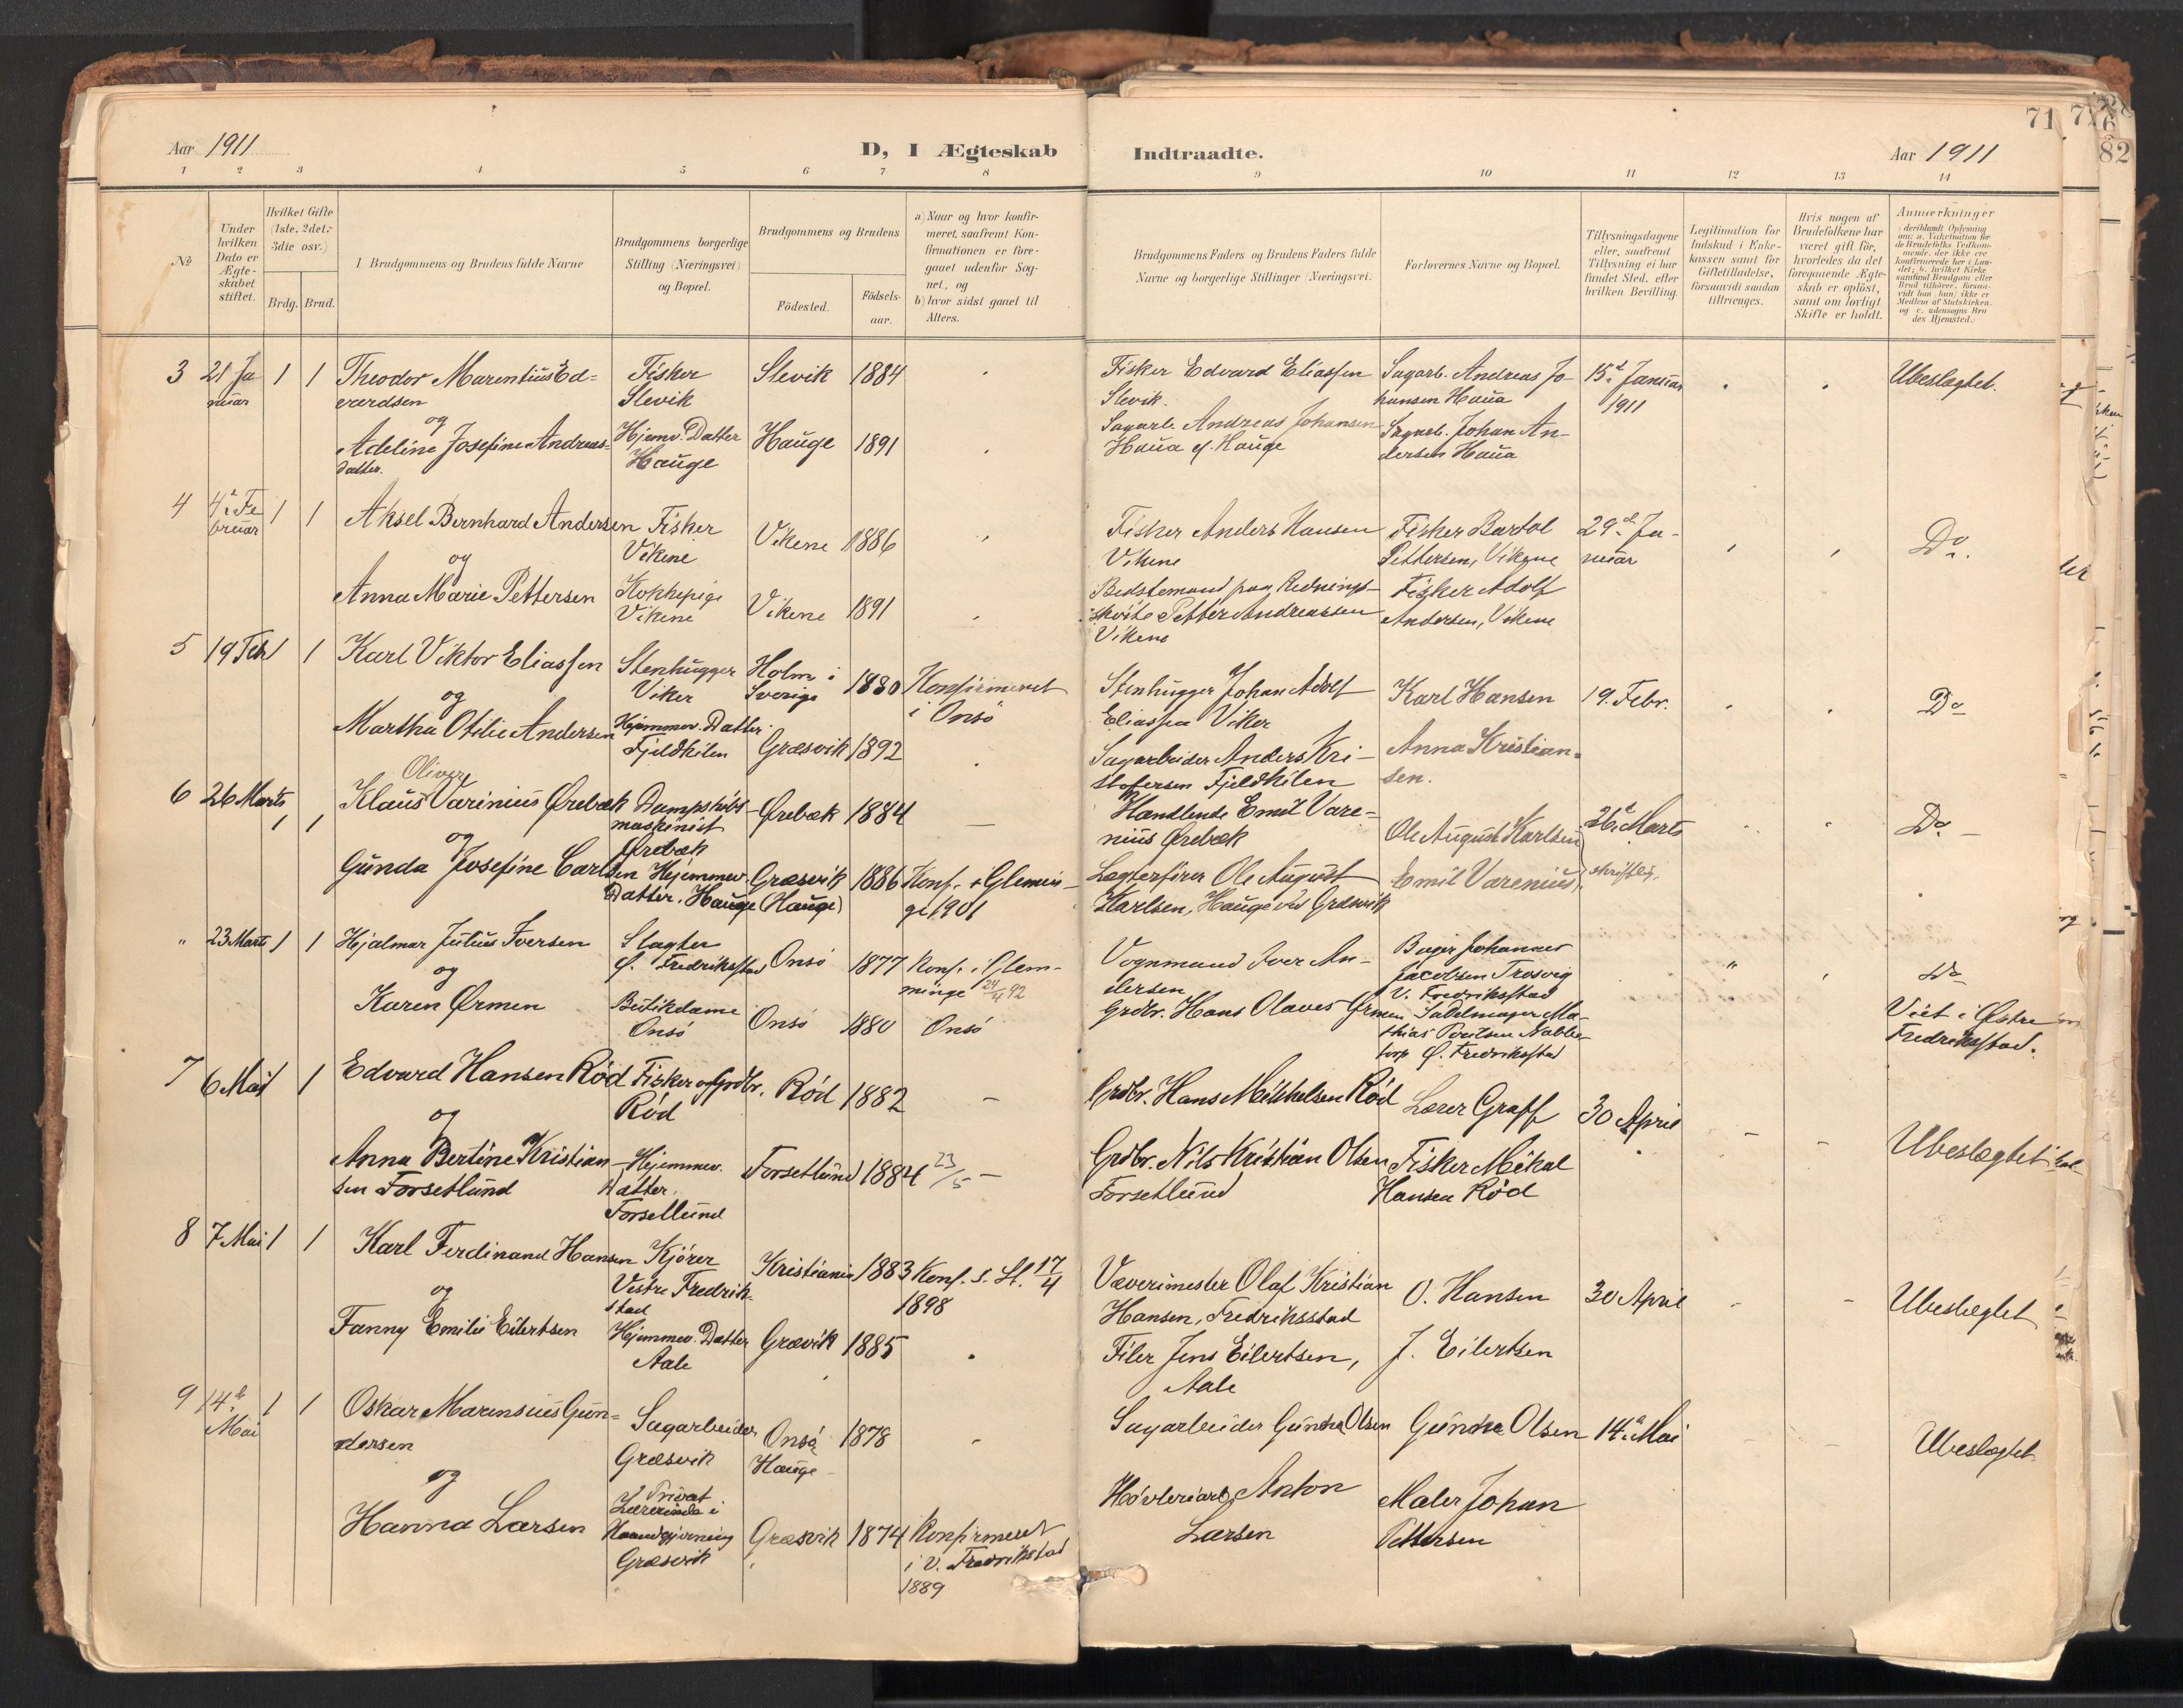 Aar 1911
D, I Ægteskab
Indtraadte.
Aar 1911
71
82
1 2 3 4 5 6 7 8 9 10 11 12 13 14
№
Under
hvilken
Dato er
Ægte-
skabet
stiftet.
Hvilket Gifte
(1ste, 2det,
3die osv.)
Brdg. Brud.
I Brudgommens og Brudens fulde Navne
Brudgommens borgerlige
Stilling (Næringsvei)
og Bopæl.
Brudgommens og Brudens
Födested.
Födsels-
aar.
a) Naar og hvor konfir-
meret, saafremt Kon-
firmationen er fore-
gaaet udenfor Sog-
net, og
b) hvor sidst gaaet til
Alters.
Brudgommens Faders og Brudens Faders fulde
Navne og borgerlige Stillinger (Næringsvei).
Forlovernes Navne og Bopæl.
Tillysningsdagene
eller, saafremt
Tillysning ei har
fundet Sted, efter
hvilken Bevilling.
Legitimation for
Indskud i Enke-
kassen samt for
Giftetilladelse,
forsaavidt saadan
tiltrænges.
Hvis nogen af
Brudefolkene har
været gift för,
hvorledes da det
foregaaende Ægte-
skab er oplöst,
samt om lovligt
Skifte er holdt.
Anmærkninger
deriblandt Oplysning
om: a. Vakcination for
de Brudefolks Vedkom-
mende, der ikke ere
konfirmerede her i Lan-
det; b. hvilket Kirke-
samfund Brudgom eller
Brud tilhörer, forsaa-
vidt han (hun) ikke er
Medlem af Statskirken,
og c. udensogns Bru-
des Hjemsted.
3 21 Ja
nuar
1 1 Theodor Marentius Ed=
verdsen
og
Adeline Josefine Andreas=
datter.
Fisker
Slevik
Hjemv. Datter
Hauge
Slevik 1884
Hauge 1891
Fisker Edvard Eliassen
Slevik.
Sagarb. Andreas Johansen
Haua of. Hauge
Sagarb. Andreas Jo-
hansen Haua
Sagarb. Johan An-
dersen Haua
15d. Januar
1911
Ubeslægtet.
4 4d. Fe
bruar
1 1 Aksel Bernhard Andersen
og
Anna Marie Pettersen
Fisker
Vikene
Kokkepige
Vikene
Vikene 1886
Vikene 1891
Fisker Anders Hansen
Vikene
Bedstemand paa Rednings-
skøite Petter Andreassen
Vikene
Fisker Bartol
Pettersen, Vikene
Fisker Adolf
Andersen, Vikene
29d. Ja-
nuar
Do.
5 19 Feb. 1 1 Karl Viktor Eliassen
og
Martha Otilie Andersen
Stenhugger
Viker
Hjemmev. Datter
Fjeldkilen
Holm i
Sverige
1880 Konfirmeret
i Onsö
Græsvik 1892
Stenhugger Johan Adolf
Eliassen Viker
Sagarbeider Anders Kri-
stofersen Fjeldkilen
Karl Hansen
Anna Kristian=
sen.
19. Febr.
Do
6 26 Marts
1 1
Oliver
Klaus Varinius Ørebæk
og
Gunda Josefine Carlsen
Dampskibs-
maskinist
Ørebæk
Hjemmev.
Datter. Hauge
Ørebæk 1884 —
Græsvik
(Hauge)
1886 Konf. i Glemin-
ge 1901
Handlende Emil Vare=
nius Ørebæk
Lagterfører Ole August
Karlsen, Hauge ved Græsvik
Ole August Karlsen
Emil Varenius
26d. Marts
skriftlig.
Do. -
" 23 Marts 1 1 Hjalmar Julius Iversen
og
Karen Ørmen
Slagter
Ø. Fredriksstad
Butikdame
Onsö
Onsö 1877 Konf. i Glem-
minge 24/4 92
Onsö 1880 Onsö
Vognmand Iver An-
dersen
Grdbr. Hans Olaves Ørmen
Bager Johannes
Jacobsen Trosvig
V. Fredriksstad
Sadelmager Ma-
thias Poulsen Nabbe-
torp Ø. Fredriksstad
"
Do
Viet i Østre
Fredriksstad.
7 6 Mai 1 Edvard Hansen Rød
og
Anna Bertine Kristian-
sen Forsetlund
Fisker og Grdbr.
Rød
Hjemmev.
Datter.
Forsetlund
Rød 1882 —
Forsetlund 1884 23/5 —
Grdbr. Hans Mikkelsen Rød
Grdbr. Nils Kristian Olsen
Forsetlund
Lærer Graff
Fisker Mikal
Hansen Rød
30 April
Ubeslægtet
8 7 Mai 1 1 Karl Ferdinand Hansen
og
Fanny Emilie Eilertsen
Kjörer
Vestre Fredrik-
stad
Hjemmev. Datter
Aale
Kristiania 1883 Konf. s. St. 17/4
1898
Græsvik 1885
Væverimester Olaf Kristian
Hansen, Fredriksstad
Filer Jens Eilertsen,
Aale
O. Hansen
J. Eilertsen
30 April
Ubeslegtet
9 14d.
Mai
1 1 Oskar Marensius Gun=
dersen
og
Hanna Larsen
Sagarbeider
Græsvik
Privat
Lærerinde i
Haandgjerning
Græsvik
Onsö
Hauge
1878
Græsvik 1874 Konfirmeret
i V. Fredrikstad
1889
Sagarbeider Gunder Olsen
Høvleriarb. Anton
Larsen
Gunder Olsen
Maler Johan
Pettersen
14d. Mai
Ubeslægtet